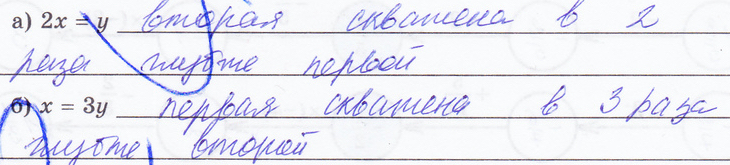 а) 2x = y вторая скважена в 2
раза глубже первой
б) x = 3y первая скважена в 3 раза
глубже второй